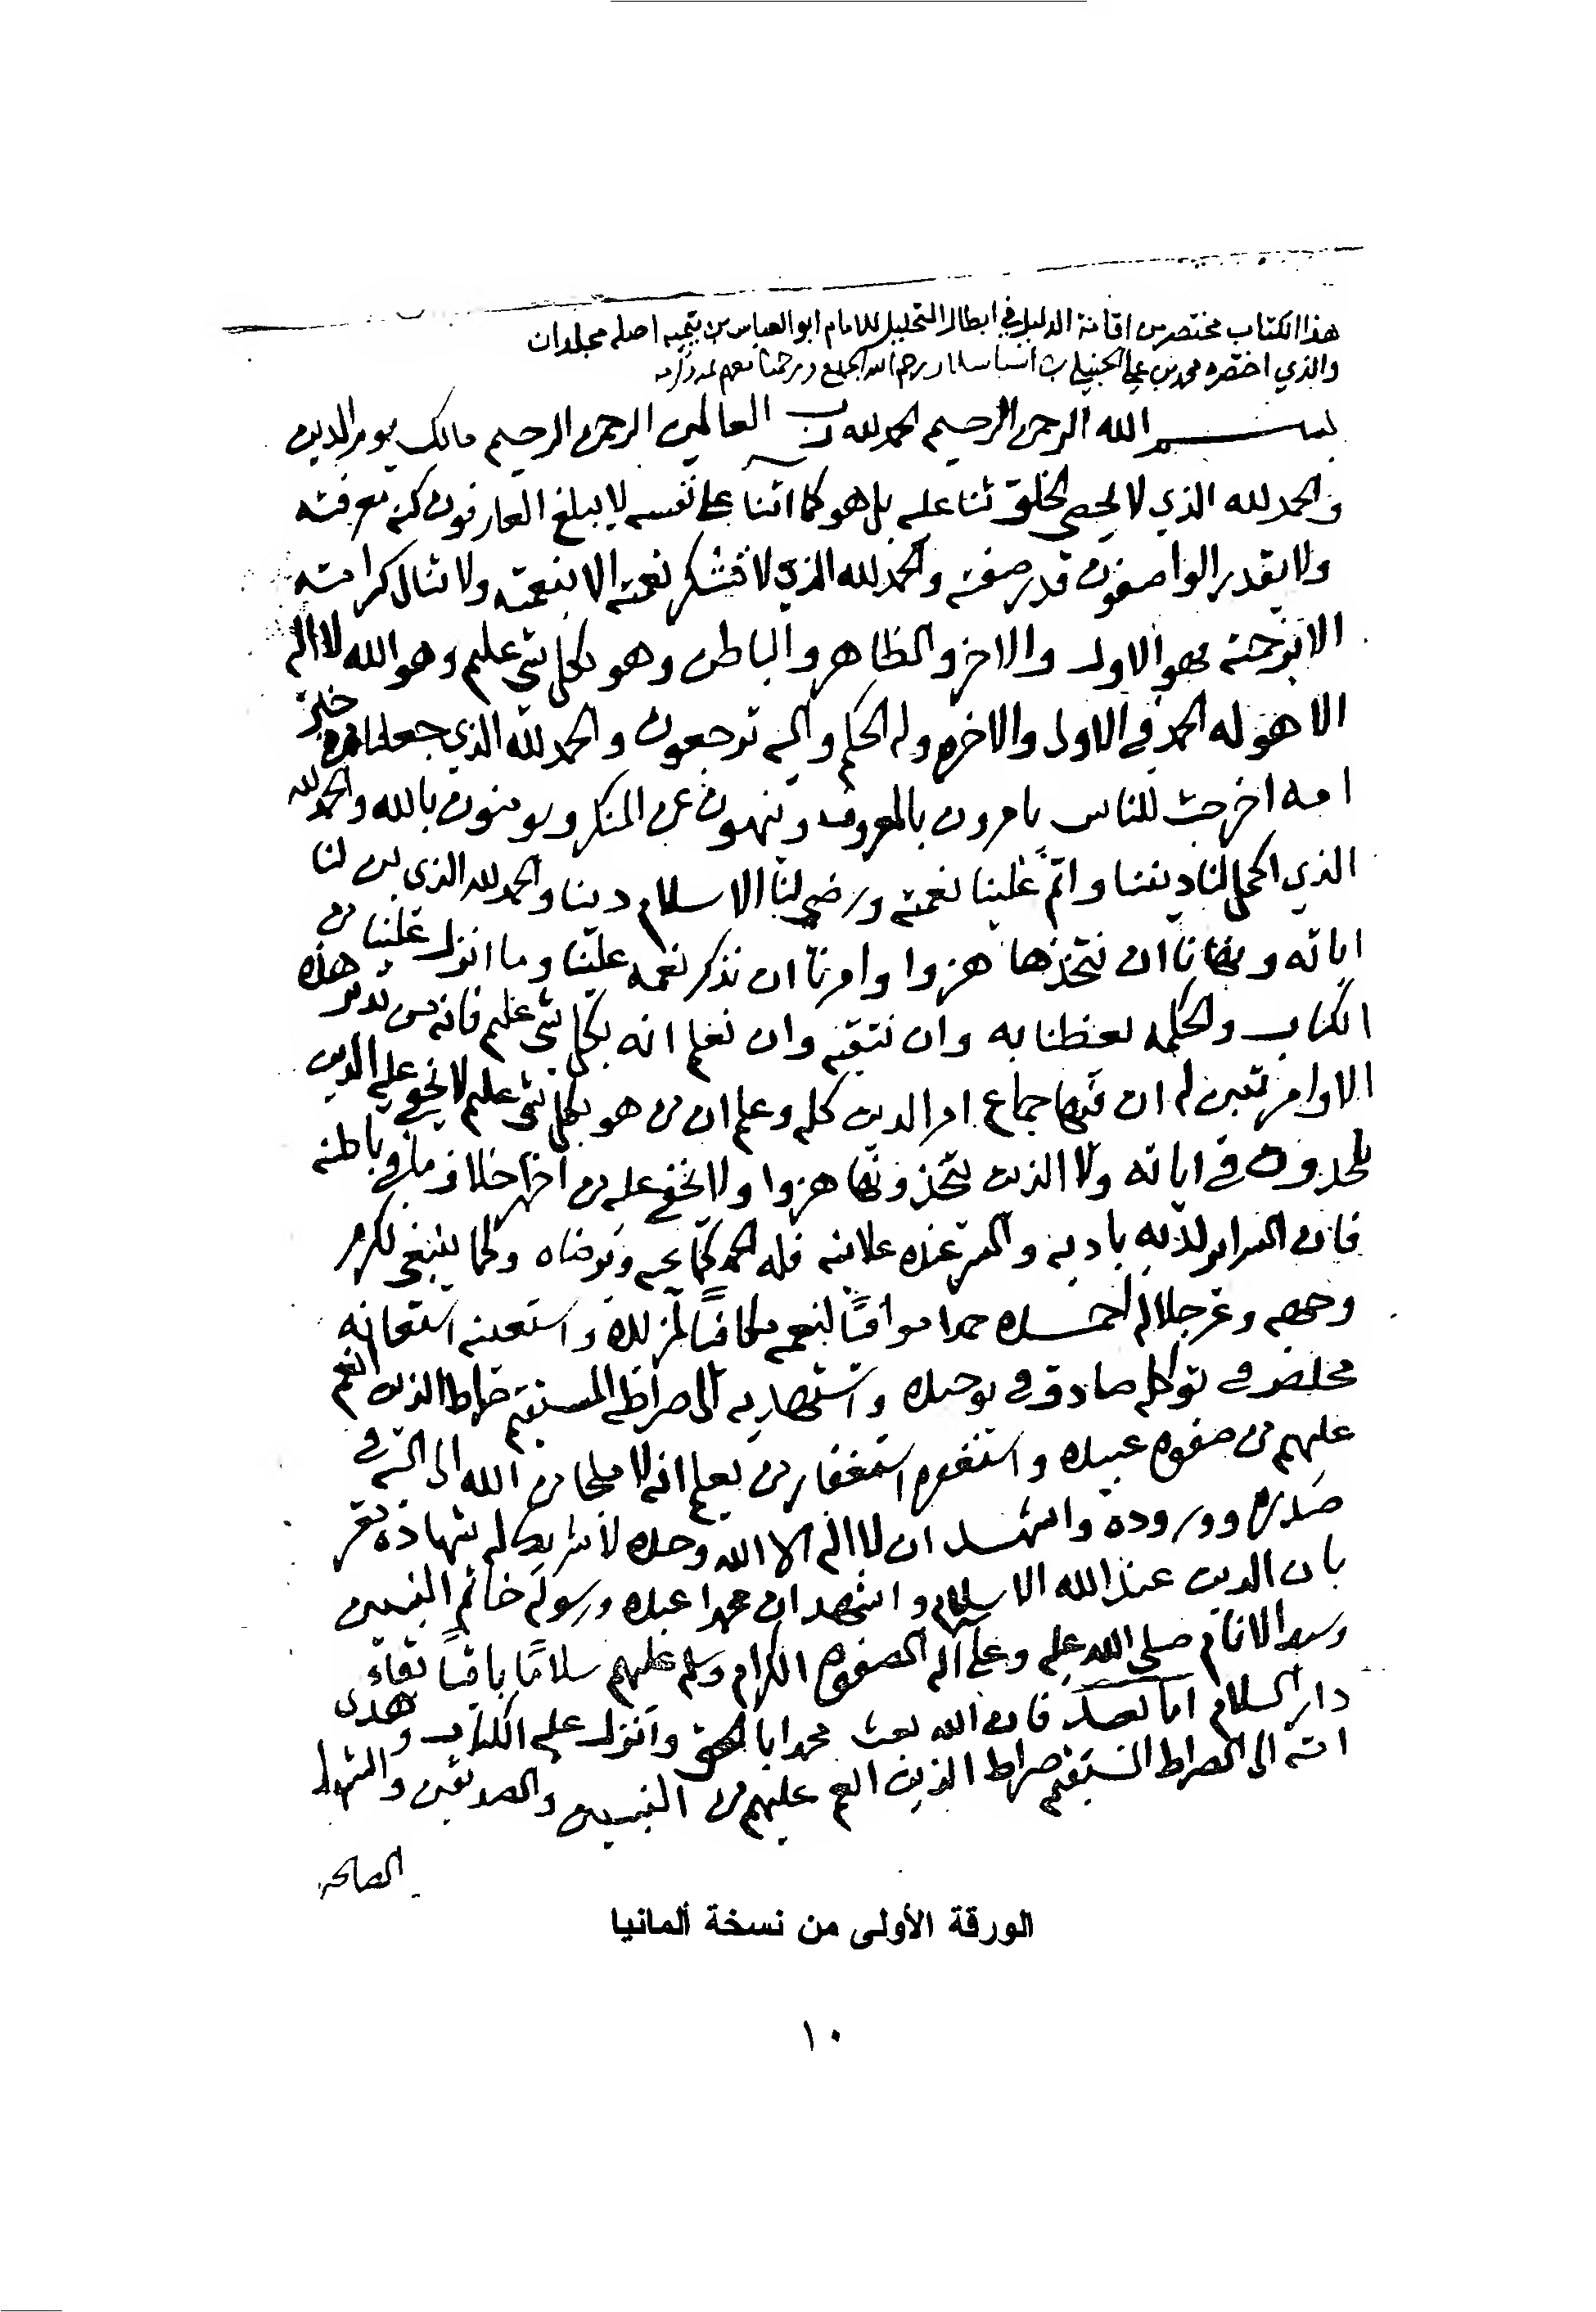 هذا الكتاب مختصر من اقامة الدليل في ابطال التحليل للامام ابو العباس بن تيميه اصله مجلدان
والذي اختصره محمد بن علي الحنبلي
بسم الله الرحمن الرحيم الحمد لله رب العالمين الرحمن الرحيم مالك يوم الدين
والحمد لله الذي لا يحصي الخلق ثنا عليه بل هو كما اثنا علي نفسه لا يبلغ العارفون كنه معرفته
ولا يقدر الواصفون قدر صفته والحمد لله الذي لا تشكر نعمته الا بنعمته ولا تنال كرامته
الا برحمته فهو الاول والاخر والظاهر والباطن وهو بكل شي عليم وهو الله لا اله
الا هو له الحمد في الاولى والاخره وله الحكم واليه ترجعون والحمد لله الذي جعلنا خير
امه اخرجت للناس يامرون بالمعروف وتنهون عن المنكر ويومنون بالله والحمد لله
الذي اكمل لنا ديننا واتم علينا نعمته ورضي لنا الاسلام دينا والحمد لله الذي بين لنا
اياته ونهانا ان نتخذها هزوا وامرنا ان نذكر نعمه علينا وما انزل علينا من
الكتاب والحكمه يعظنا به وان نتقيه وان نعلم انه بكل شي عليم فانه من تدبر هذه
الاوامر تبين له ان فيها جماع امر الدين كله وعلم ان من هو بكل شي عليم لا يخفى عليه الذين
يلحدون في اياته ولا الذين يتخذونها هزوا ولا يخفى عليه من اظهر خلاف ما في باطنه
فان السراير لديه باديه والسر عنده علانيه فله الحمد كما يحبه ويرضاه وكما ينبغي لكرم
وجهه وعز جلاله احمده حمدا موافيا لنعمه مكافيا لمزيده واستعينه استعانة
مخلص في توكله صادق في توحيده واستهديه الى صراطه المستقيم صراط الذين انعم
عليهم من صفوه عبيده واستغفره استغفار من يعلم انه لا ملجا من الله الا اليه في
صدره ووروده واشهد ان لا اله الا الله وحده لا شريك له شهادة مقر
بان الدين عند الله الاسلام واشهد ان محمدا عبده ورسوله خاتم النبيين
وسيد الانام صلى الله عليه وعلى آله الصفوه الكرام وسلم عليهم سلاما باقيا بقاء
دار السلام اما بعد فان الله بعث محمدا بالحق وانزل عليه الكتاب وهدى
امته الى الصراط المستقيم صراط الذين انعم عليهم من النبيين والصديقين والشهدا
الورقة الأولى من نسخة ألمانيا
١٠